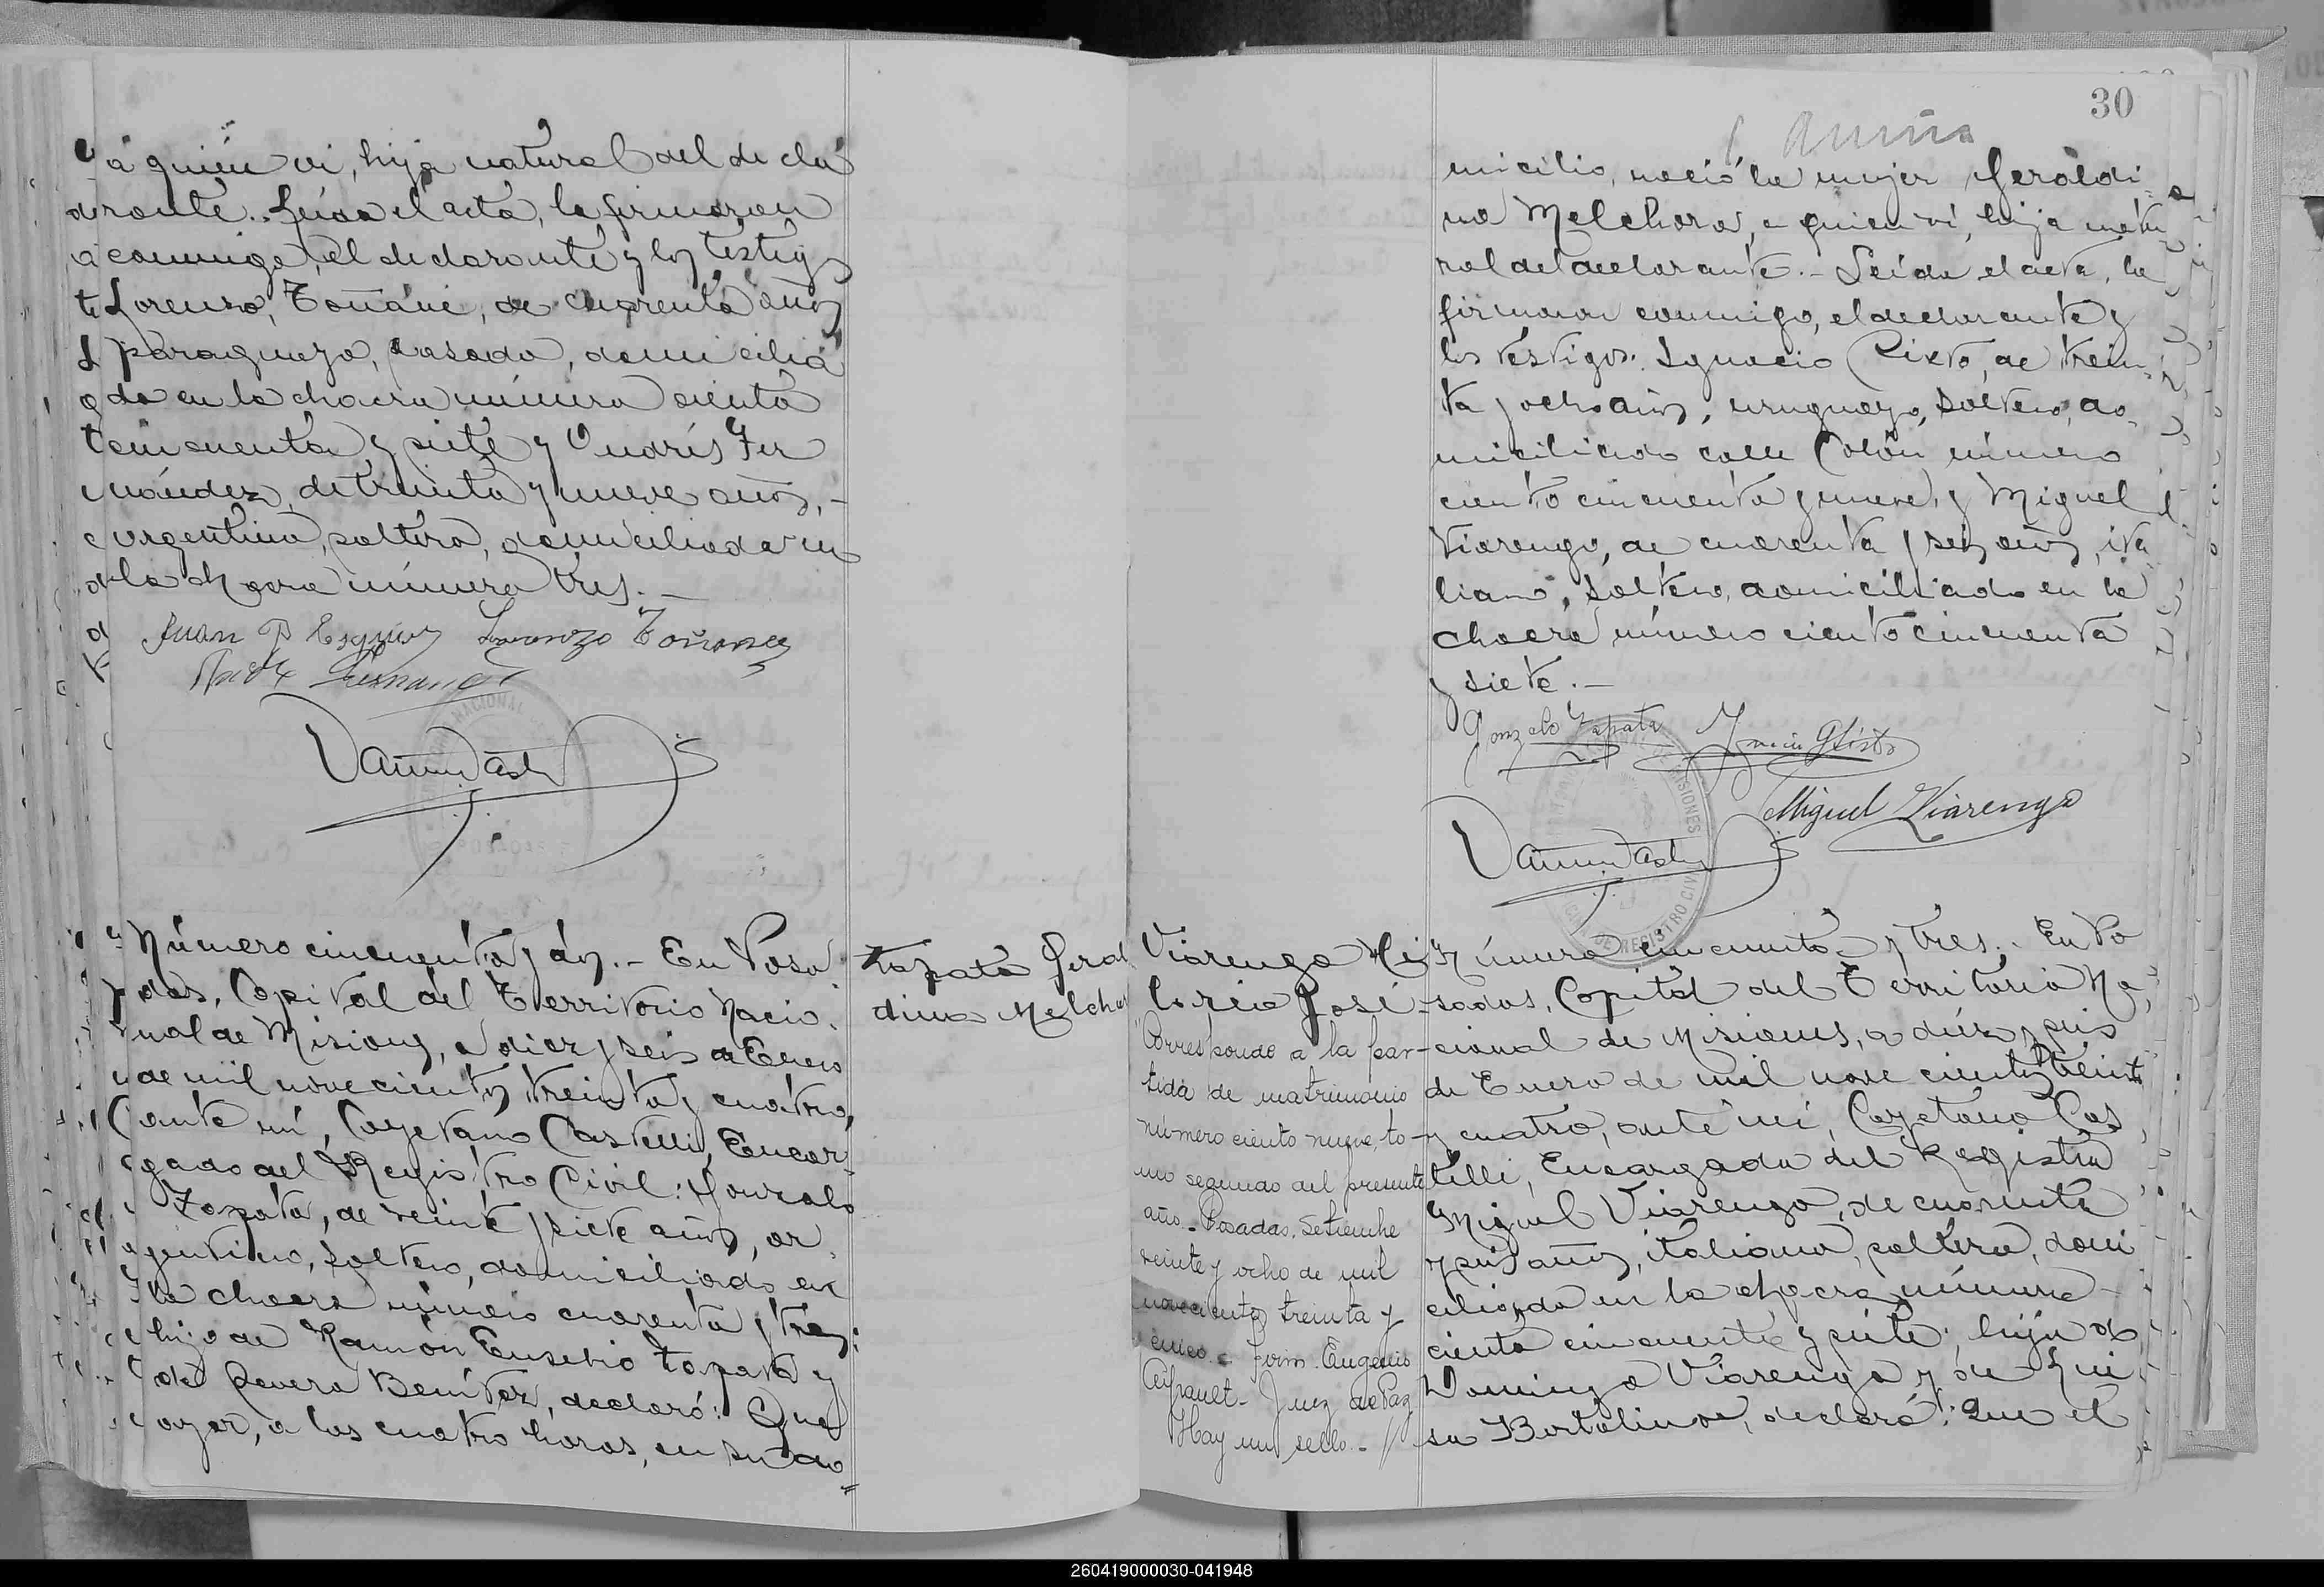 á quién vi, hija natural del decla
rante. Leída el acta, la firmaron
conmigo, el declarante y los testigos
Lorenzo, de cuarenta años
paraguayo, casado, domicilia
do en la chacra número ciento
cincuenta y siete y Fer
nández, de treinta y nueve años, -
argentino, soltero, domiciliado en
la chacra número tres. -
Juan Lorenzo
Número cincuenta y dos. - En Posa
das, Capital del Territorio Nacio-
nal de Misiones, a diez y seis de Enero
de mil novecientos treinta y cuatro,
ante mí, Cayetano Castelli, Encar-
gado del Registro Civil: Gonzalo
Zapata, de veinte y siete años, ar-
gentino, soltero, domiciliado en
la chacra número cuarenta y tres:
hijo de Ramón Eusebio Zapata y
de Severa Benítez, declaró: Que
ayer, a las cuatro horas, en su do-
Zapata Geral
dina Melchor
30
micilio, nació la mujer Geraldi-
na Melchora, a quien ví, hija natu-
ral del declarante. - Leída el acta, la
firmaron conmigo, el declarante y
los testigos: Ignacio, de trein-
ta y ocho años, uruguayo, soltero, do-
miciliado calle Colón número
ciento cincuenta y nueve, y Miguel
Viarengo, de cuarenta y seis años, ita
liano, soltero, domiciliado en la
chacra número ciento cincuenta
y siete. -
Gonzalo Zapata
Miguel Viarengo
Viarengo Hi
lario José
Corresponde a la par-
tida de matrimonio
número ciento nueve, to-
mo segundo del presente
año. - Posadas, Setiembre
veinte y ocho de mil
novecientos treinta y
cinco. - Firm. Eugenio
Juez de Paz
Hay un sello. - //
Número cincuenta y tres. - En Po
sadas, Capital del Territorio Na-
cional de Misiones, a diez y seis
de Enero de mil nove cientos treinta
y cuatro, ante mí, Cayetano Cas
telli, Encargado del Registro
Miguel Viarengo, de cuarenta
y seis años, italiano, soltero, domi
ciliado en la chacra número -
ciento cincuenta y siete; hijo de
Domingo Viarengo y de Lui
sa Bortolino, declaró: Que el
260419000030-041948